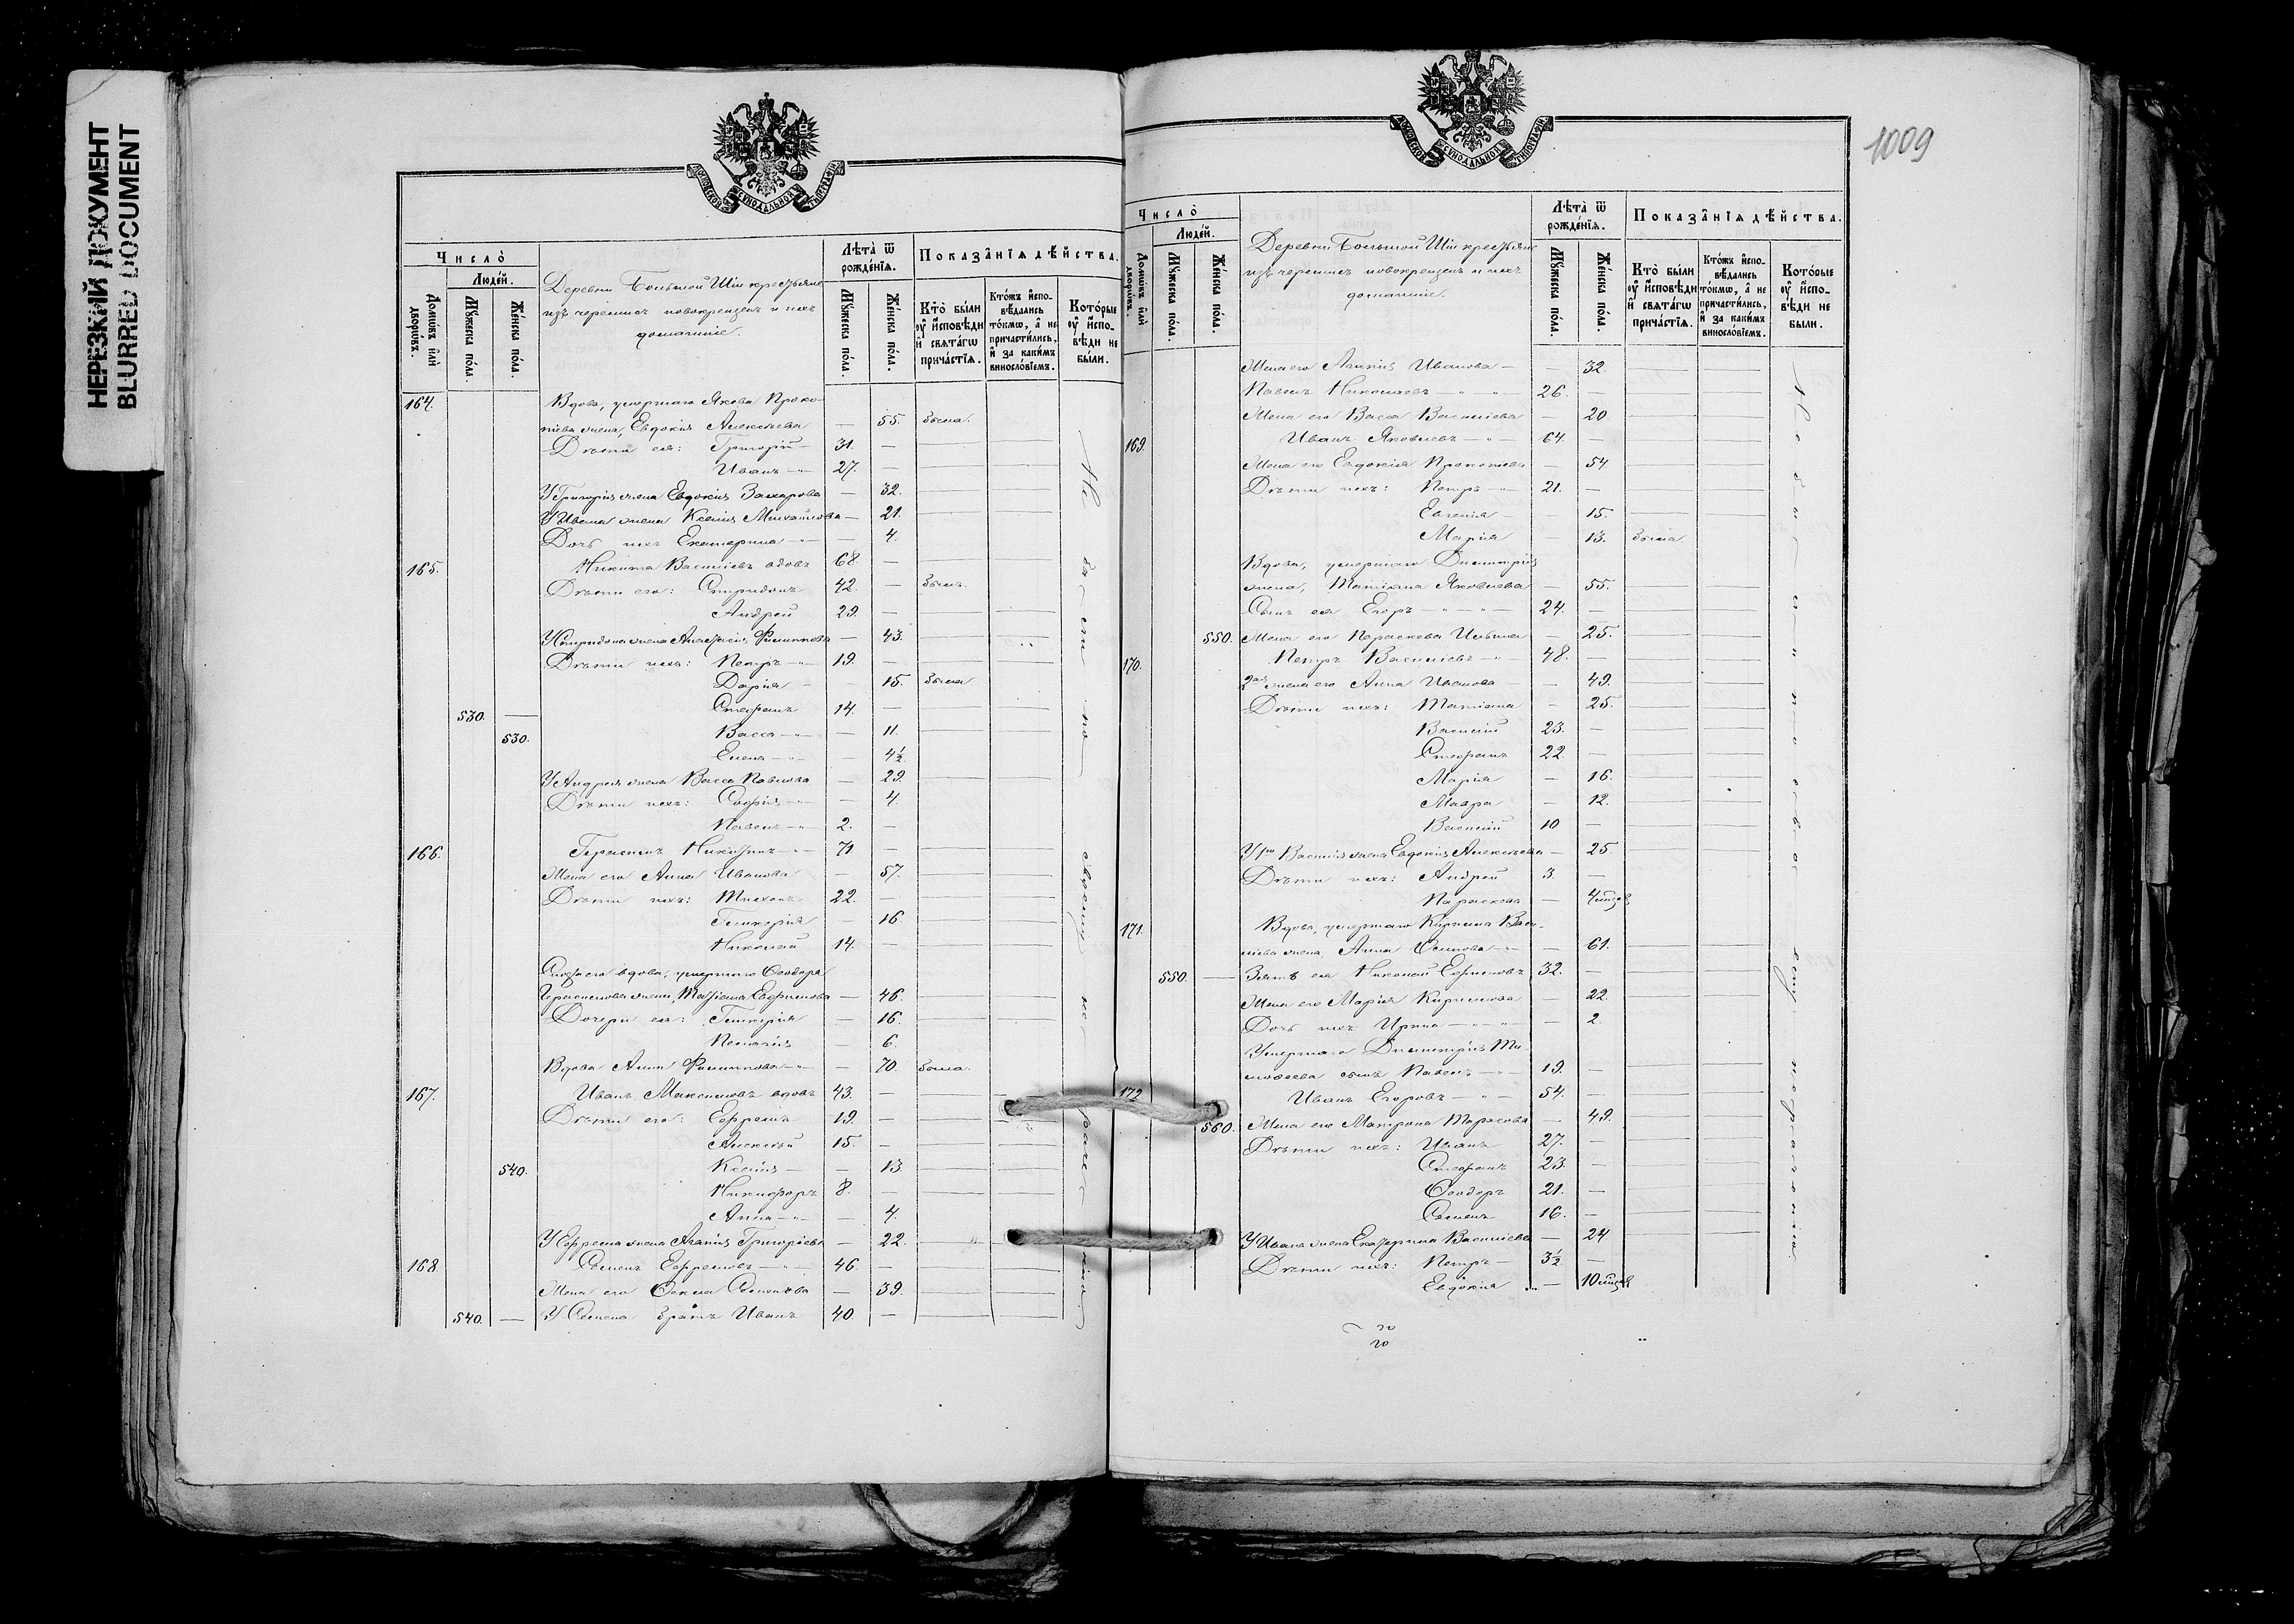 НЕРЕЗКИЙ ДОКУМЕНТ
BLURRED DOCUMENT
МОСКОВСКОЙ СѴНОДАЛЬНОЙ ТИПОГРАФІИ
Число̀
Людей.
Домѡвъ или дворѡвъ.
Мꙋжеска пола.
Женска пола.
Деревни Большой Ши крестьяне
изъ черемисъ новокрещенъ и ихъ
домашніе.
Лѣта̀ ѿ рожденїѧ.
Мꙋжеска пола.
Женска пола.
Показанїѧ дѣйства.
Кто̀ были оу҆ исповѣди и свѧтагѡ причастїѧ.
Ктожъ исповѣдались токмѡ, а не причастились, и за какимъ винословїемъ.
Которые оу҆ исповѣди не были.
164. Вдова, умершаго Якова Проко-
піева жена, Евдокія Алексѣева — 55. была.
Дѣти ея: Григорій 31. —
Иванъ 27. —
У Григорія жена Евдокія Захарова — 32.
У Ивана жена Ксенія Михайлова — 21.
Дочь ихъ Екатерина — 4.
165. Никита Васильевъ вдовъ 68. —
Дѣти его: Спиридонъ 42. — былъ.
Андрей 29. —
У Спиридона жена Анастасія Филиппова — 43.
Дѣти ихъ: Петръ 19. —
Дарія — 15. была
530. Стефанъ 14. —
530. Васса — 11.
Елена — 4½
У Андрея жена Васса Павлова — 29.
Дѣти ихъ: Софія — 4
Павелъ 2. —
166. Герасимъ Никитинъ 71 —
Жена его Анна Иванова — 57.
Дѣти ихъ: Михаилъ 22. —
Гликерія — 16
Николай 14. —
Сноха его вдова, умершаго Ѳеодора
Герасимова жена, Татіана Ефимова — 46.
Дочери ея: Гликерія — 16.
Пелагія — 6.
Вдова Анна Филиппова — 70. была.
167. Иванъ Максимовъ вдовъ 43. —
Дѣти его: Ефремъ 19. —
Алексѣй 15. —
540. Ксенія — 13
Никифоръ 8. —
Анна — 4.
У Ефрема жена Агапія Григоріева — 22.
168. Семенъ Ефремовъ 46. —
Жена его Ѳекла Семенова — 39.
540. У Семена братъ Иванъ 40. —
Не бы-сти по
1009
МОСКОВСКОЙ СѴНОДАЛЬНОЙ ТИПОГРАФІИ
Число̀
Людей.
Домѡвъ или дворѡвъ.
Мꙋжеска пола.
Женска пола.
Деревни Большой Ши крестьяне
изъ черемисъ новокрещенъ и ихъ
домашніе.
Лѣта̀ ѿ рожденїѧ.
Мꙋжеска пола.
Женска пола.
Показанїѧ дѣйства.
Кто̀ были оу҆ исповѣди и свѧтагѡ причастїѧ.
Ктожъ исповѣдались токмѡ, а не причастились, и за какимъ винословїемъ.
Которые оу҆ исповѣди не были.
Жена его Агапія Иванова — 32.
Павелъ Николаевъ 26. —
Жена его Васса Васильева — 20.
169. Иванъ Яковлевъ 64. —
Жена его Евдокія Прокопіева — 54
Дѣти ихъ: Петръ 21. —
Евгенія — 15.
Марія — 13. была.
Вдова, умершаго Димитрія
жена, Татіана Яковлева — 55.
Сынъ ея Егоръ 24. —
550. Жена его Параскева Ильина — 25.
170. Петръ Васильевъ 48. —
2ая жена его Анна Иванова — 49.
Дѣти ихъ: Татіана — 25.
Василій 23. —
Стефанъ 22 —
Марія — 16.
Мавра — 12.
Василій 10 —
У 1го Василія жена Евдокія Алексѣева — 25.
Дѣти ихъ: Андрей 3. —
Параскева — 4 мѣсяц.
171. Вдова, умершаго Кирилла Васи-
ліева жена Анна Осипова — 61.
550. Зять ея Николай Ефимовъ 32. —
Жена его Марія Кириллова — 22.
Дочь ихъ Ирина — 2.
Умершаго Димитрія Ти-
моѳеева сынъ Павелъ 19. —
172 Иванъ Егоровъ 54. —
560. Жена его Матрона Тарасова — 49.
Дѣти ихъ: Иванъ 27. —
Стефанъ 23. —
Ѳеодоръ 21. —
Семенъ 16. —
У Ивана жена Екатерина Васильева — 24
Дѣти ихъ: Петръ 3½ —
Евдокія — 10 мѣсяц.